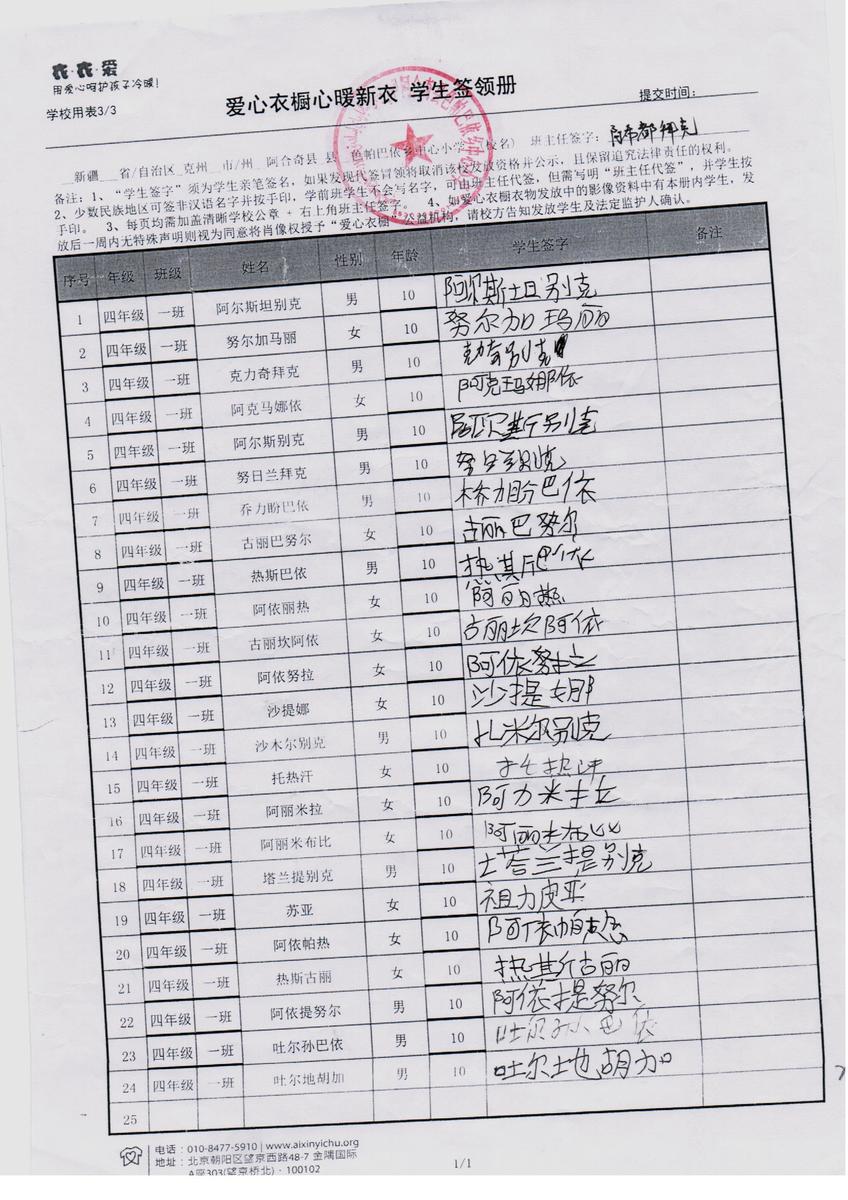 衣·衣·爱
用爱心呵护孩子冷暖!
学校用表3/3
爱心衣橱心暖新衣 学生签领册
提交时间:
新疆 省/自治区 克州 市/州 阿合奇县 县 色帕巴依乡中心小学 (校名) 班主任签字:
备注:1、“学生签字”须为学生亲笔签名,如果发现代签冒领将取消该校发放资格并公示,且保留追究法律责任的权利。
2、少数民族地区可签非汉语名字并按手印,学前班学生不会写名字,可由班主任代签,但需写明“班主任代签”,并学生按
手印。 3、每页均需加盖清晰学校公章 + 右上角班主任签字。 4、如爱心衣橱衣物发放中的影像资料中有本册内学生,发
放后一周内无特殊声明则视为同意将肖像权授予“爱心衣橱”公益机构,请校方告知发放学生及法定监护人确认。
序号 年级 班级 姓名 性别 年龄 学生签字 备注
1 四年级 一班 阿尔斯坦别克 男 10 阿尔斯坦别克
2 四年级 一班 努尔加马丽 女 10 努尔加玛丽
3 四年级 一班 克力奇拜克 男 10
4 四年级 一班 阿克马娜依 女 10 阿克玛娜依
5 四年级 一班 阿尔斯别克 男 10 阿尔斯别克
6 四年级 一班 努日兰拜克 男 10
7 四年级 一班 乔力盼巴依 男 10 乔力盼巴依
8 四年级 一班 古丽巴努尔 女 10 古丽巴努尔
9 四年级 一班 热斯巴依 男 10 热斯巴依
10 四年级 一班 阿依丽热 女 10
11 四年级 一班 古丽坎阿依 女 10 古丽坎阿依
12 四年级 一班 阿依努拉 女 10 阿依努拉
13 四年级 一班 沙提娜 女 10 沙提娜
14 四年级 一班 沙木尔别克 男 10 扎米尔别克
15 四年级 一班 托热汗 女 10 托热汗
16 四年级 一班 阿丽米拉 女 10 阿力米拉
17 四年级 一班 阿丽米布比 女 10
18 四年级 一班 塔兰提别克 男 10 塔兰提别克
19 四年级 一班 苏亚 女 10 祖力皮亚
20 四年级 一班 阿依帕热 女 10 阿依帕热
21 四年级 一班 热斯古丽 女 10 热斯古丽
22 四年级 一班 阿依提努尔 男 10 阿依提努尔
23 四年级 一班 吐尔孙巴依 男 10 吐尔孙巴依
24 四年级 一班 吐尔地胡加 男 10 吐尔地胡加
25
电话:010-8477-5910 | www.aixinyichu.org
地址:北京朝阳区望京西路48-7 金隅国际
A座303(望京桥北)· 100102
1/1